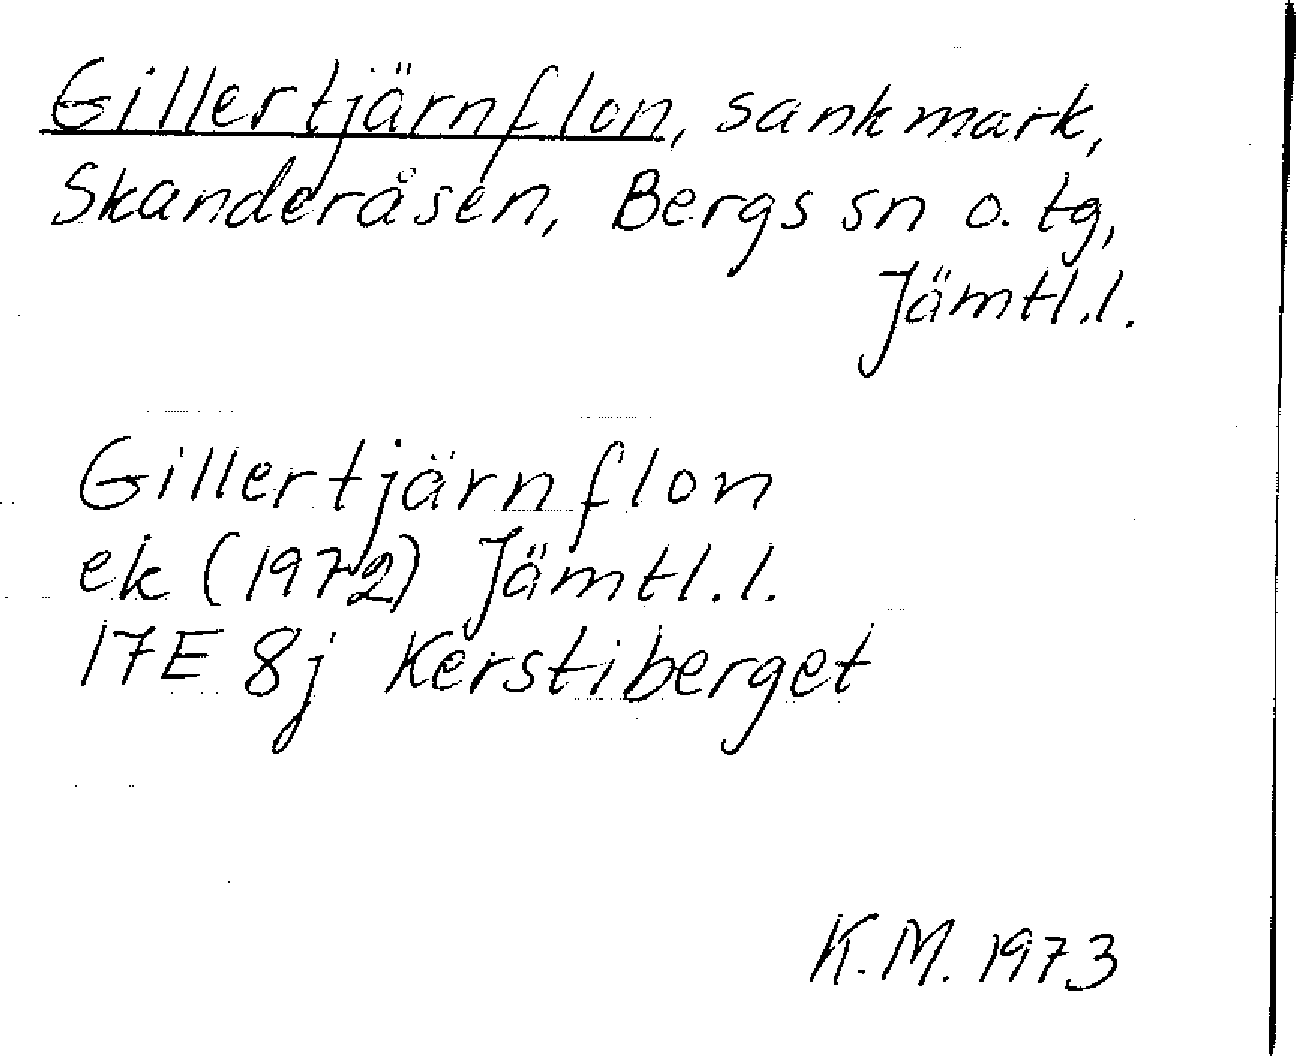 Gillertjärnflon, sankmark,
Skanderåsen, Bergs sn o. tg,
Jämtl.l.
Gillertjärnflon
ek (1972) Jämtl.l.
17E 8j Kerstiberget
K.M. 1973